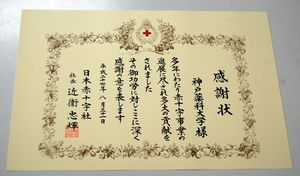 感謝状
神戸薬科大学様
多年にわたり赤十字事業の
進展に尽され多大の貢献を
されました
その御功労に対しここに深く
感謝の意を表します
平成二十一年八月二十一日
日本赤十字社
社長 近衞忠煇